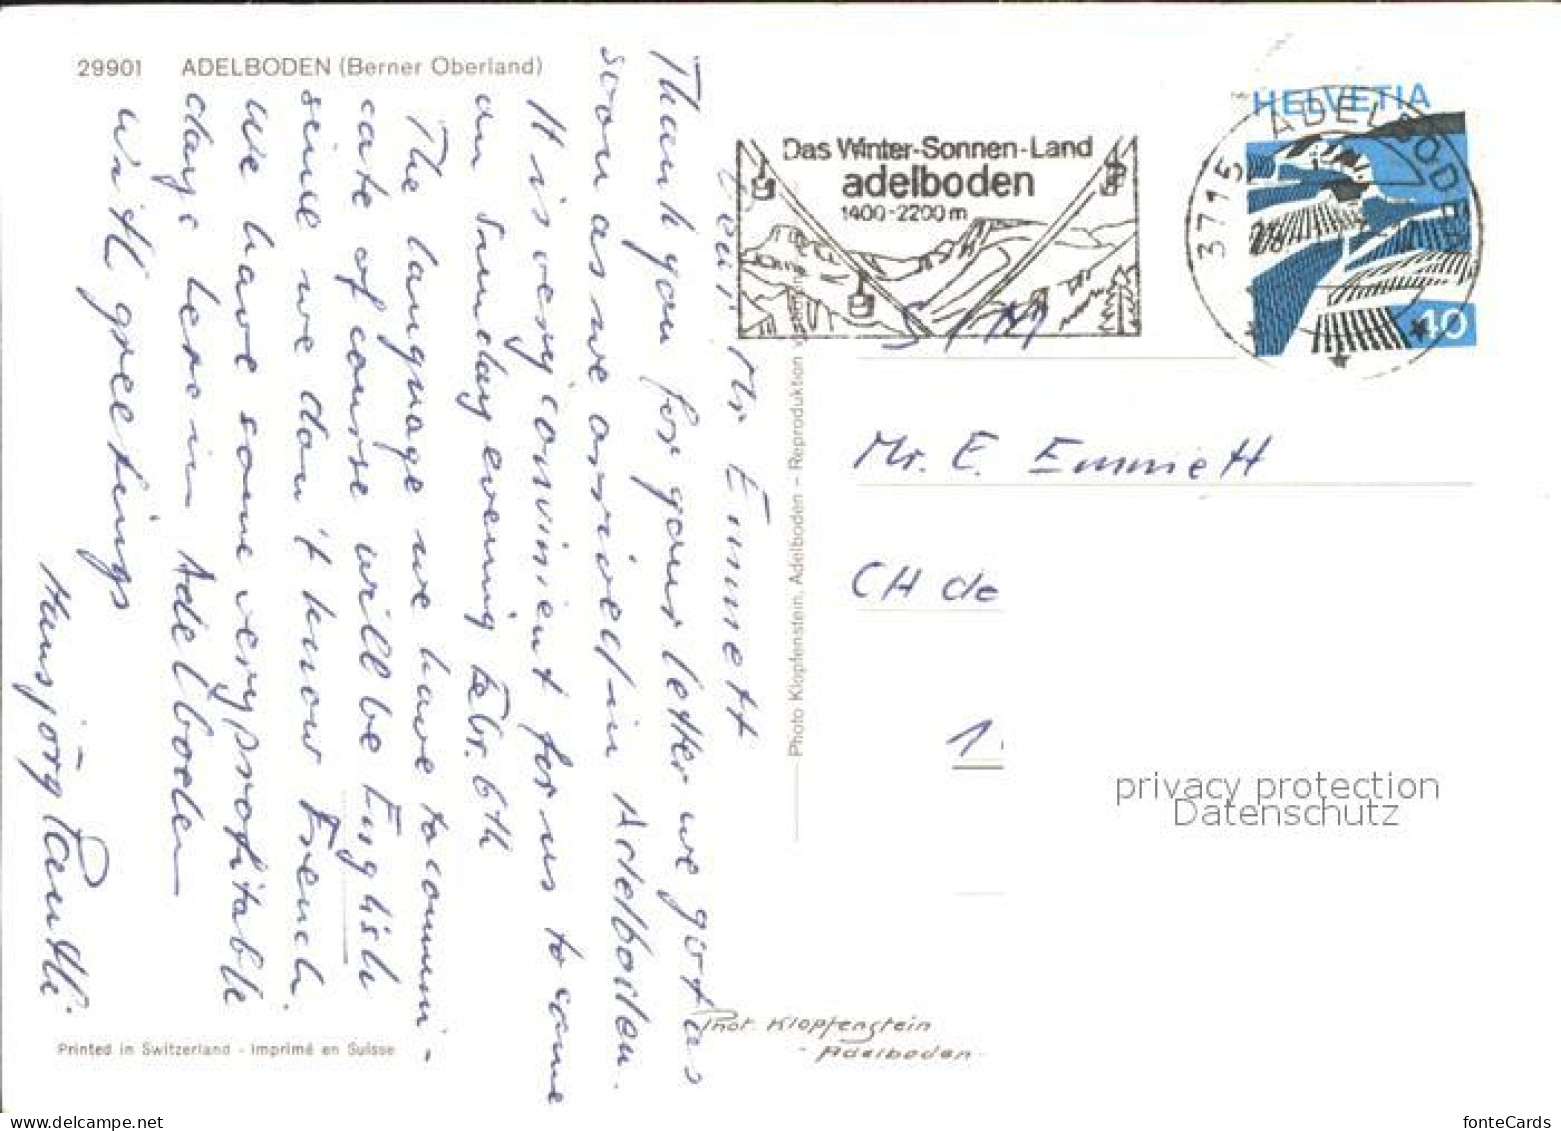 29901 ADELBODEN (Berner Oberland)
Dear Mr Emmett
Thank you for your letter we got as
soon as we arrived in Adelboden.
It is very convinient for us to come
on Sunday evening Febr. 6th
The language we have to communi-
cate of course will be English
sine we don't know French.
We have some very profitable
days here in Adelboden
With greetings
Hansjörg
Printed in Switzerland - Imprimé en Suisse
Photo Klopfenstein, Adelboden – Reproduktion
Das Winter-Sonnen-Land
adelboden
1400-2200m
HELVETIA
40
3715 ADELBODEN
Mr. E. Emmett
CH de
1
privacy protection
Datenschutz
Phot. Klopfenstein
- Adelboden -
www.delcampe.net
fonteCards